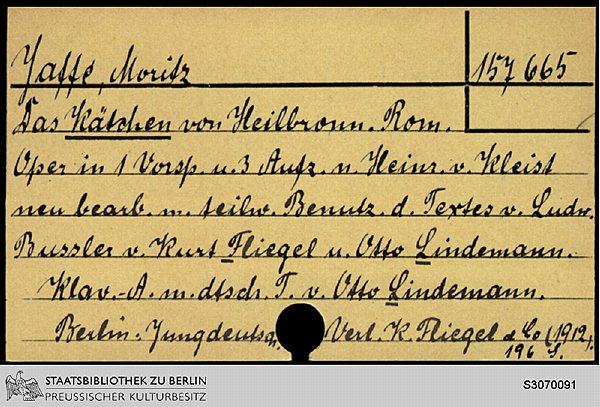 Jaffé, Moritz
157 665
Das Kätchen von Heilbronn. Rom.
Oper in 1 Vorsp. u. 3 Aufz. n. Heinr. v. Kleist
neu bearb. m. teilw. Benutz. d. Textes v. Ludw.
Bussler v. Kurt Fliegel u. Otto Lindemann.
Klav.-A. m. dtsch. T. v. Otto Lindemann.
Berlin: Jungdeutsch. Verl. K. Fliegel & Co (1912).
196 S.
STAATSBIBLIOTHEK ZU BERLIN
PREUSSISCHER KULTURBESITZ
S3070091